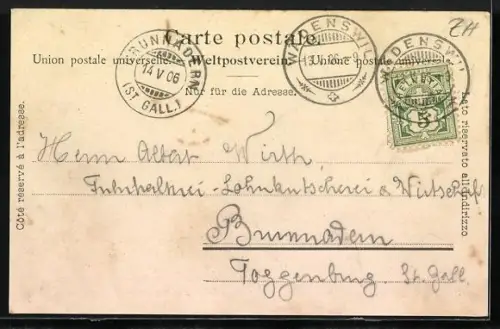 Carte postale.
Union postale universelle. Weltpostverein. Unione postale universale
Nur für die Adresse.
BRUNNADERN
14 V 06
(ST GALL.)
WÄDENSWIL
WÄDENSWIL
ZH
5
Côté réservé à l'adresse.
Lato riservato all'indirizzo
Herrn Albert Wirth,
Fuhrhalterei - Lohnkutscherei & Wirtschaft
Brunnadern
Toggenburg St. Gall.